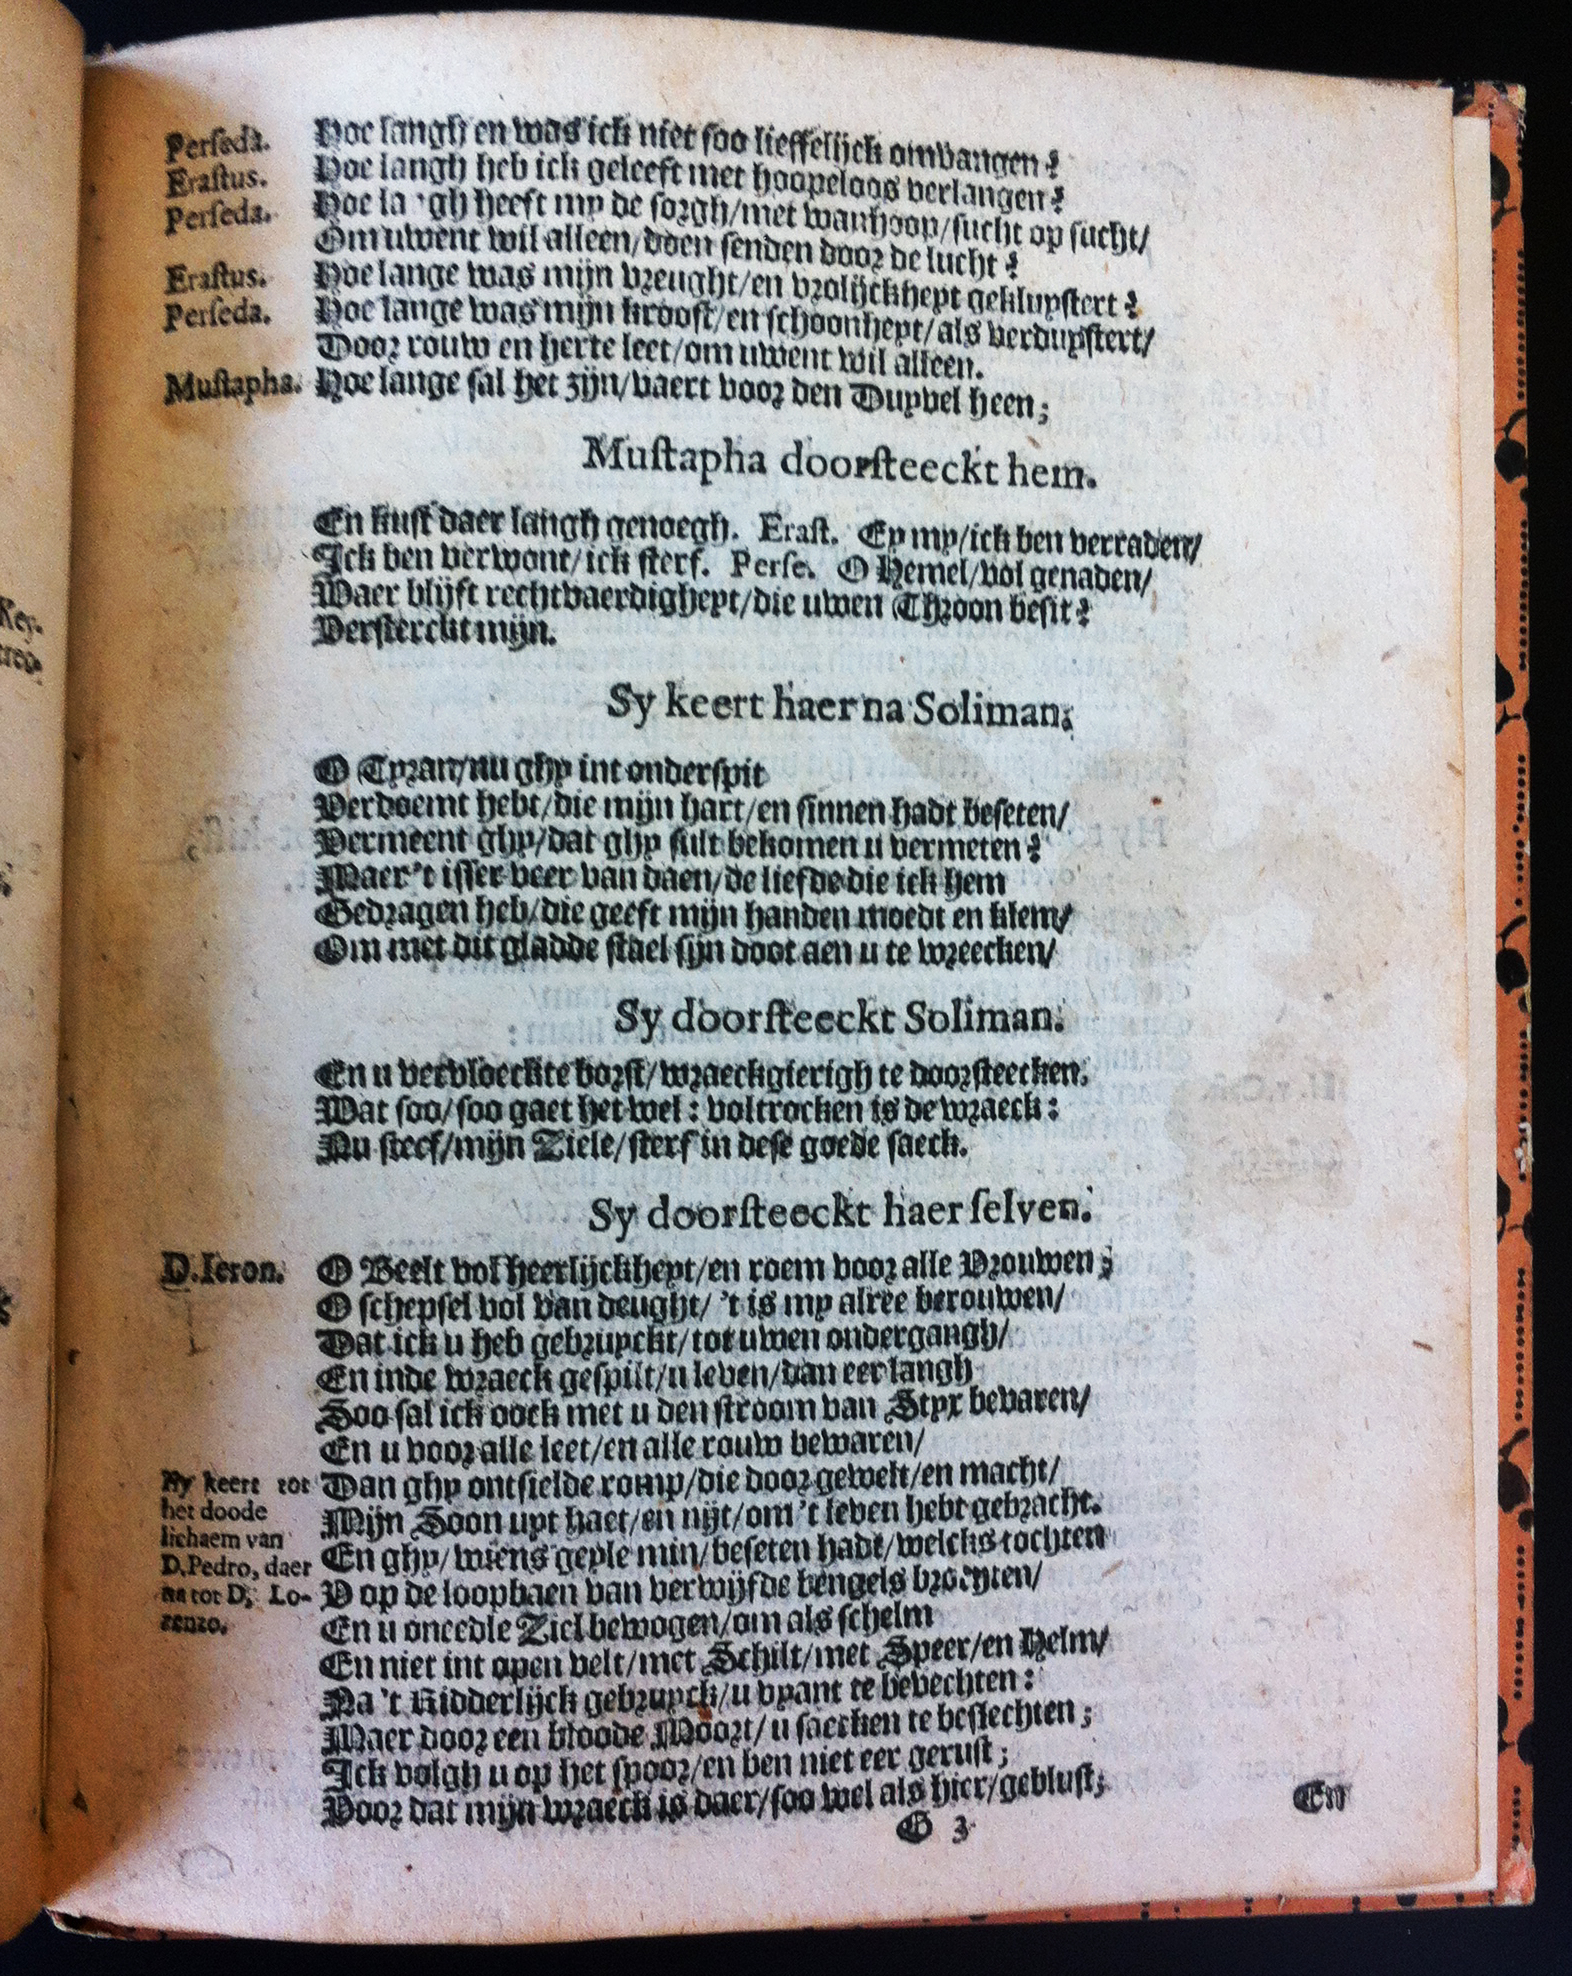 Perseda. Hoe langh en was ick niet soo lieffelijck omvangen?
Erastus. Hoe langh heb ick geleeft met hoopeloos verlangen?
Perseda. Hoe la gh heeft my de sorgh/met wanhoop/sucht op sucht/
Om uwent wil alleen/doen senden door de lucht?
Erastus. Hoe lange was mijn vreught/en vrolijckheyt gekluystert?
Perseda. Hoe lange was mijn kroost/en schoonheyt/als verduystert/
Door rouw en herte leet/om uwent wil alleen.
Mustapha. Hoe lange sal het zijn/vaert voor den Duyvel heen;
Mustapha doorsteeckt hem.
En kust daer langh genoegh. Erast. Ey my/ick ben verraden/
Ick ben verwont/ick sterf. Perse. O Hemel/vol genaden/
Waer blijft rechtvaerdigheyt/die uwen Throon besit?
Versterckt mijn.
Sy keert haer na Soliman.
O Tyran/nu ghy int onderspit
Verdoemt hebt/die mijn hart/en sinnen hadt beseten/
Vermeent ghy/dat ghy sult bekomen u vermeten?
Maer 't isser veer van daen/de liefde die ick hem
Gedragen heb/die geeft mijn handen moedt en klem/
Om met dit gladde stael sijn doot aen u te wreecken/
Sy doorsteeckt Soliman.
En u vervloeckte borst/wraeckgierigh te doorsteecken.
Wat soo/soo gaet het wel: voltrocken is de wraeck:
Nu sterf/mijn Ziele/sterf in dese goede saeck.
Sy doorsteeckt haer selven.
D.Ieron. O Beelt vol heerlijckheyt/en roem voor alle Vrouwen;
O schepsel vol van deught/'t is my alree berouwen/
Dat ick u heb gebruyckt/tot uwen ondergangh/
En inde wraeck gespilt/u leven/dan eer langh
Soo sal ick oock met u den stroom van Styx bevaren/
En u voor alle leet/en alle rouw bewaren/
Hy keert tot het doode lichaem van D.Pedro, daer na tot D. Lorenzo.
Dan ghy ontsielde romp/die door gewelt/en macht/
Mijn Soon uyt haet/en nijt/om 't leven hebt gebracht.
En ghy/wiens geyle min/beseten hadt/welcks tochten
V op de loopbaen van verwijfde bengels brochten/
En u oneedle Ziel bewogen/om als schelm
En niet int open velt/met Schilt/met Speer/en Helm/
Na 't Ridderlijck gebruyck/u vyant te bevechten:
Maer door een bloode Moort/u saecken te beslechten;
Ick volgh u op het spoor/en ben niet eer gerust;
Voor dat mijn wraeck is daer/soo wel als hier/geblust;
G 3
En